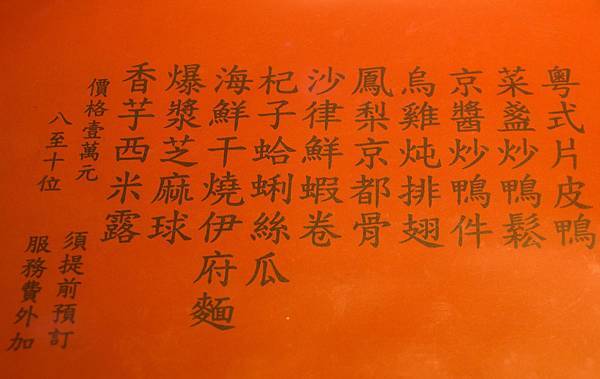 粵式片皮鴨
菜盞炒鴨鬆
京醬炒鴨件
烏雞炖排翅
鳳梨京都骨
沙律鮮蝦卷
杞子蛤蜊絲瓜
海鮮干燒伊府麵
爆漿芝麻球
香芋西米露
價格壹萬元
八至十位
須提前預訂
服務費外加